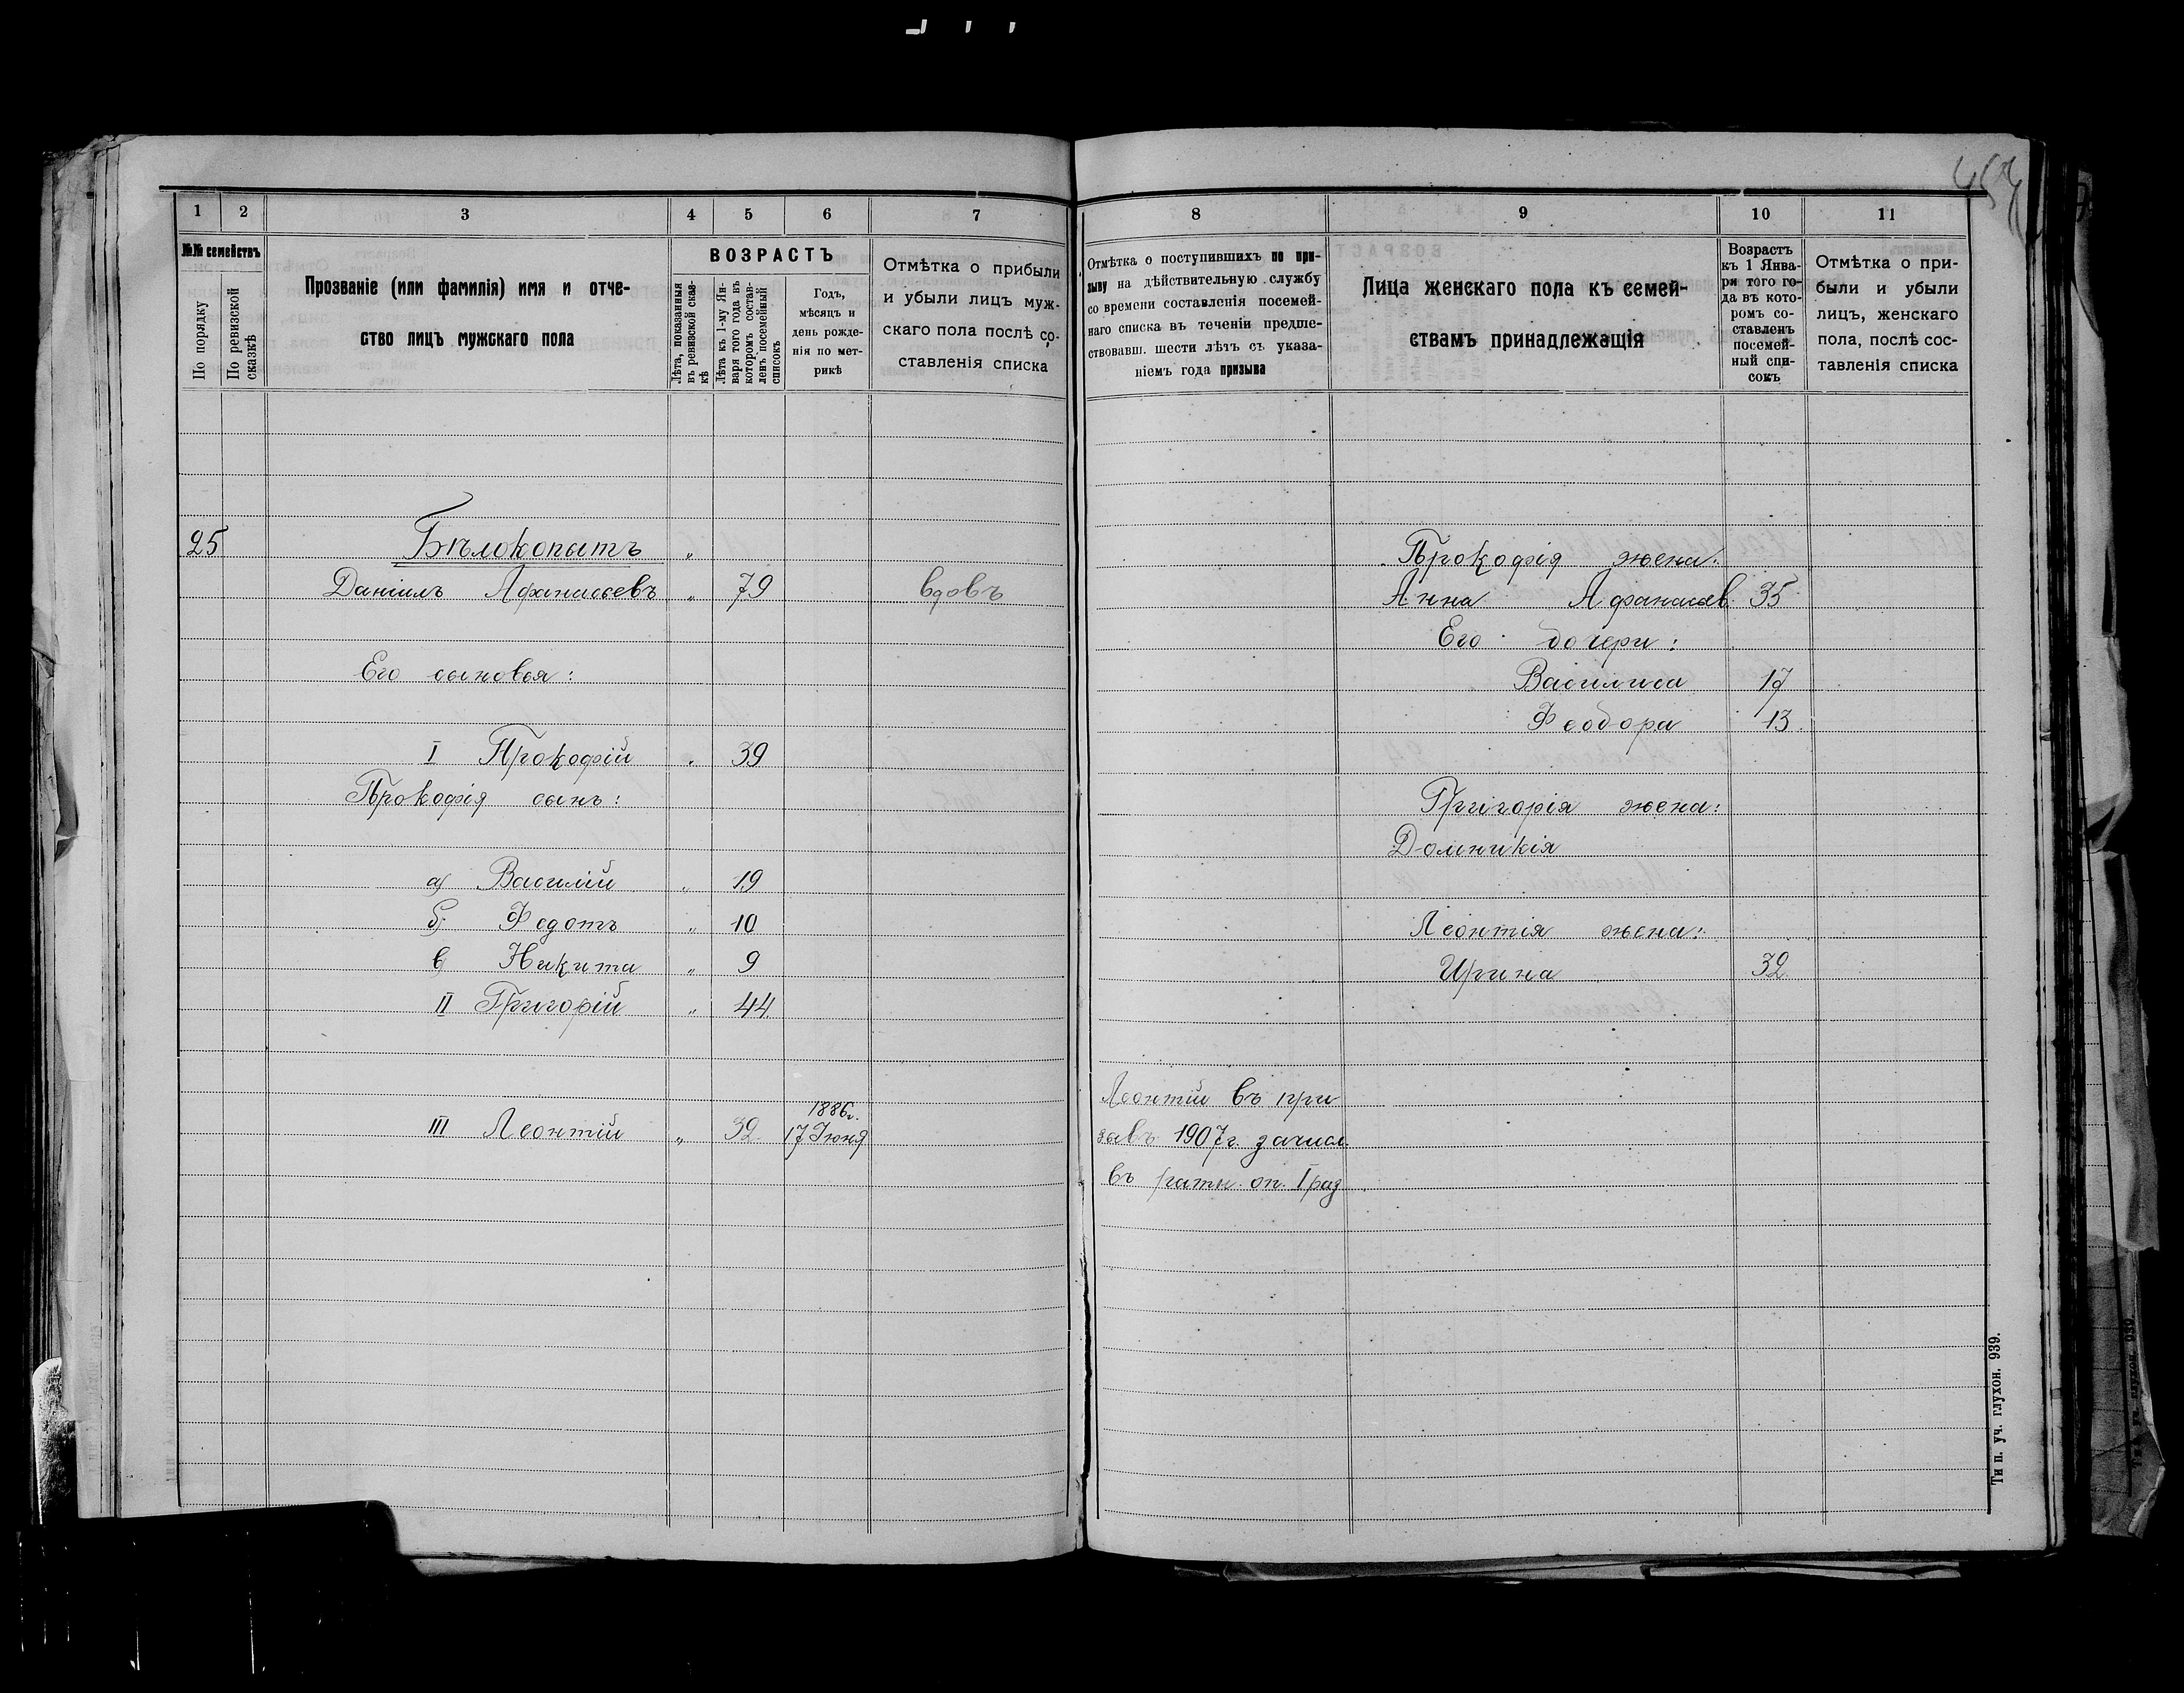 1 2 3 4 5 6 7
№№ семействъ
По порядку
По ревизской сказкѣ
Прозваніе (или фамилія) имя и отче-
ство лицъ мужскаго пола
ВОЗРАСТЪ
Лѣта, показанныя
въ ревизской сказ-
кѣ
Лѣта къ 1-му Ян-
варя того года въ
которомъ состав-
ленъ посемейный
списокъ
Годъ,
мѣсяцъ и
день рожде-
нія по мет-
рикѣ
Отмѣтка о прибыли
и убыли лицъ муж-
скаго пола послѣ со-
ставленія списка
25 Бѣлокопытъ „
Даніилъ Афанасьевъ „ 79 вдовъ
Его сыновья:
I Прокофій „ 39
Прокофія сынъ:
а) Василій „ 19
б) Федотъ „ 10
в) Никита „ 9
II Григорій „ 44
1886г.
III Леонтій „ 32 17 Іюня
8 9 10 11
Отмѣтка о поступившихъ по при-
зыву на дѣйствительную службу
со времени составленія посемей-
наго списка въ теченіи предше-
ствовавш. шести лѣтъ съ указа-
ніемъ года призыва
Лица женскаго пола къ семей-
ствамъ принадлежащія
Возрастъ
къ 1 Янва-
ри того го-
да въ кото-
ромъ со-
ставленъ
посемей-
ный спи-
сокъ
Отмѣтка о при-
были и убыли
лицъ, женскаго
пола, послѣ сос-
тавленія списка
Прокофія жена:
Анна Афанасьев. 35
Его дочери:
Василиса 17
Феодора 13
Григорія жена:
Домникія
Леонтія жена:
Ирина 32
Леонтій въ при
зывъ 1907г. зачисл.
въ ратн. оп. I раз
Тип. уч. глухон. 939.